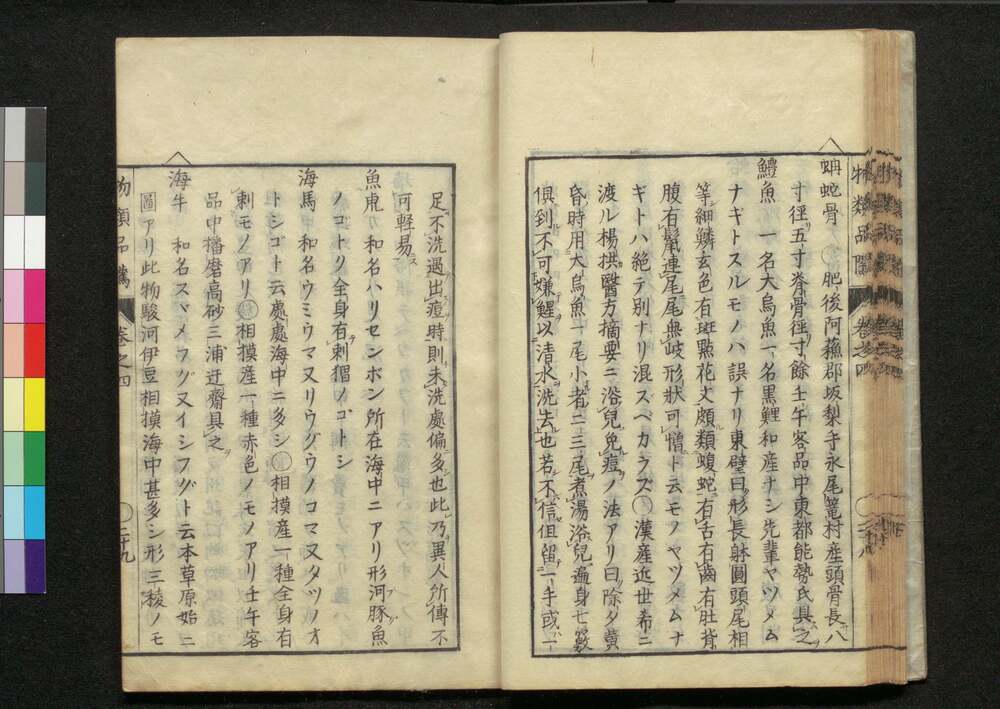 蚺蛇骨 肥後阿蘓郡坂梨手永尾篭村産頭骨長八
寸徑五寸脊骨徑寸餘壬午客品中東都能勢氏具之
鱧魚 一名大烏魚一名黒鯉和産ナシ先輩ヤツメム
ナギトスルモノハ誤ナリ東璧曰形長躰圓頭尾相
等細鱗玄色有斑點花文頗類蝮蛇有舌有齒有肚背
腹有鬣連尾尾無歧形狀可憎ト云モノヤツメムナ
ギトハ絶テ別ナリ混スベカラズ 漢産近世希ニ
渡ル楊拱醫方摘要ニ浴兒免痘ノ法アリ曰除夕黄
昏時用大烏魚一尾小者二三尾煮湯浴兒遍身七竅
俱到不可嫌鯹以清水洗去也若不信但留一手或一
足不洗遇出痘時則未洗處偏多也此乃異人所傳不
可輕易
魚虎 和名ハリセンボン所在海中ニアリ形河豚魚
ノコトク全身有刺猬ノゴトシ
海馬 和名ウミウマ又リウグウノコマ又タツノオ
トシゴト云處處海中ニ多シ 相摸産一種全身有
刺モノアリ 相摸産一種赤色ノモノアリ壬午客
品中播磨高砂三浦迂齋具之
海牛 和名スヾメフグ又イシフグト云本草原始ニ
圖アリ此物駿河伊豆相摸海中甚多シ形三稜ノモ
物類品隲 卷之四 二十九